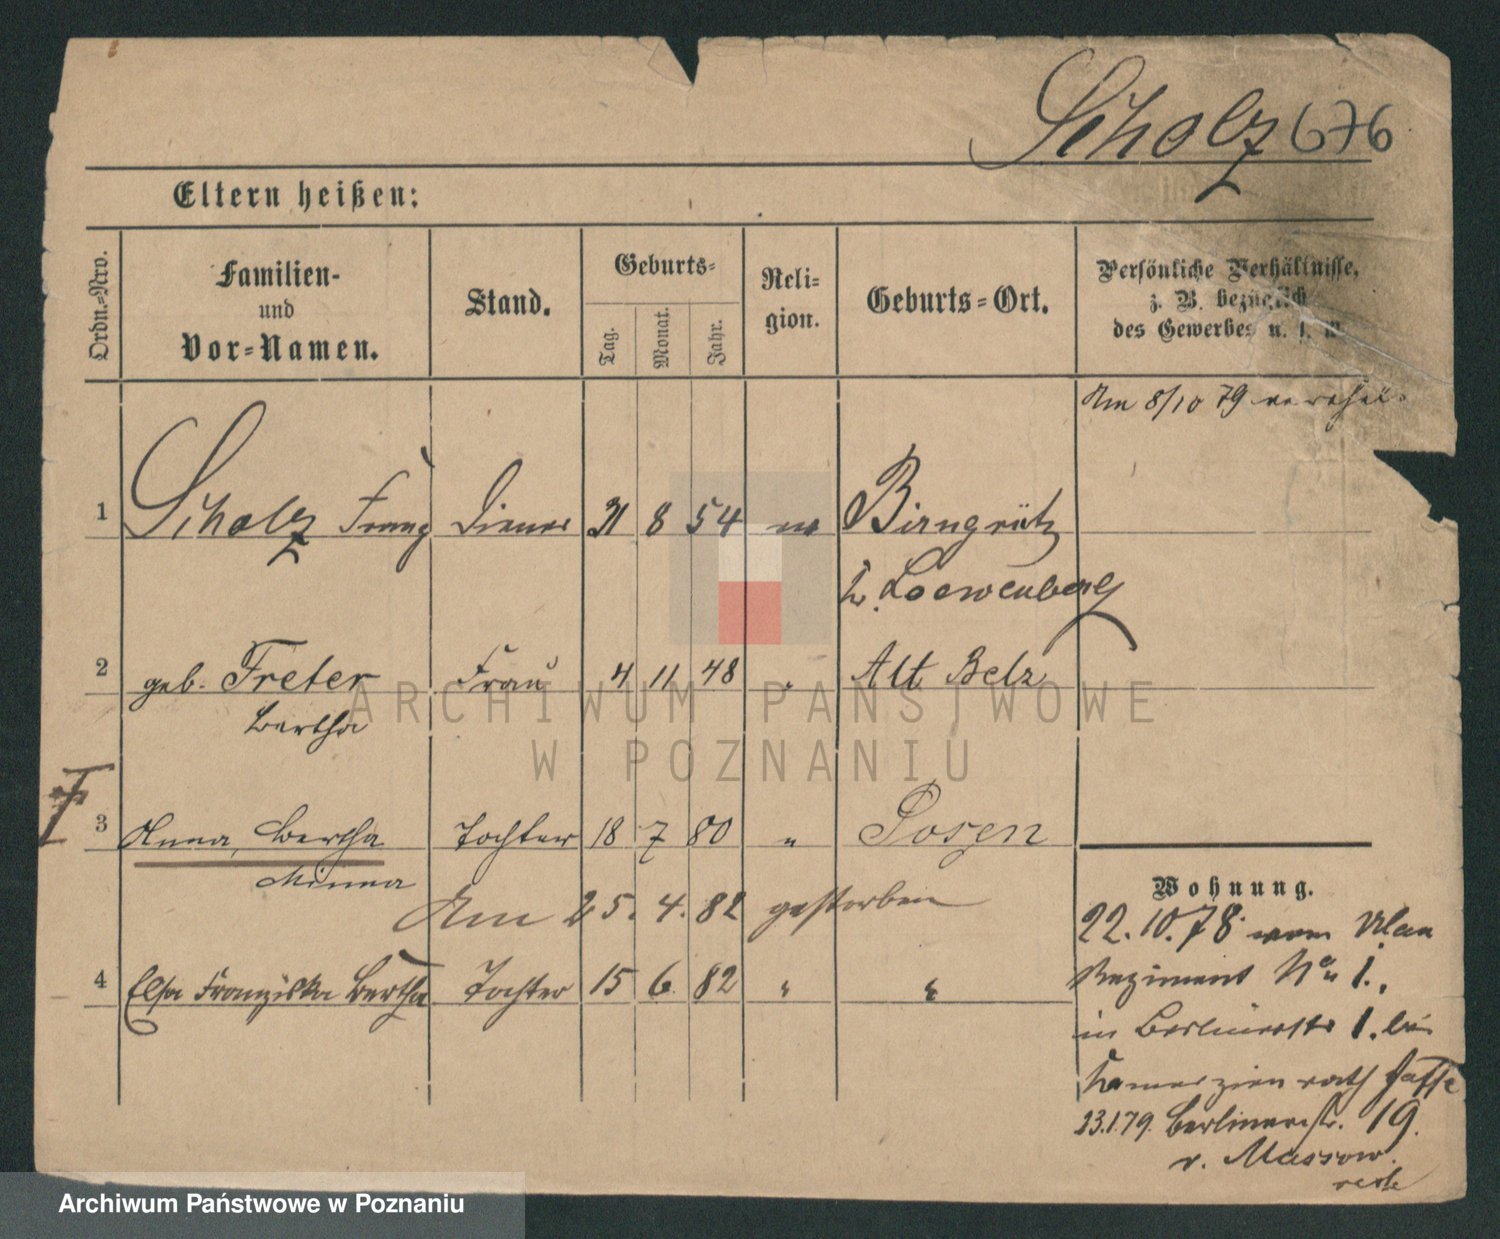 Scholz 676
Eltern heißen:
Ordn.-Nro.
Familien-
und
Vor-Namen.
Stand.
Geburts-
Tag.
Monat.
Jahr.
Reli-
gion.
Geburts-Ort.
Persönliche Verhältnisse,
z. B. bezüglich
des Gewerbes u. s. w.
Am 8/10 79
1 Scholz Franz Diener 31 8 54 ev Birngrütz
Loewenberg
2 geb. Freter Frau 4 11 48 " Alt Belz
Bertha
3 Anna, Bertha Tochter 18 7 80 " Posen
Minna
Am 25. 4. 82 gestorben
4 Elsa Franziska Bertha Tochter 15 6 82 " "
Wohnung.
22.10.78 vom Ulan
Regiment No 1.,
in Berlinerstr 1. bei
Jaffe
23.1.79. Berlinerstr. 19.
v. Massow.
ARCHIWUM PAŃSTWOWE
W POZNANIU
Archiwum Państwowe w Poznaniu